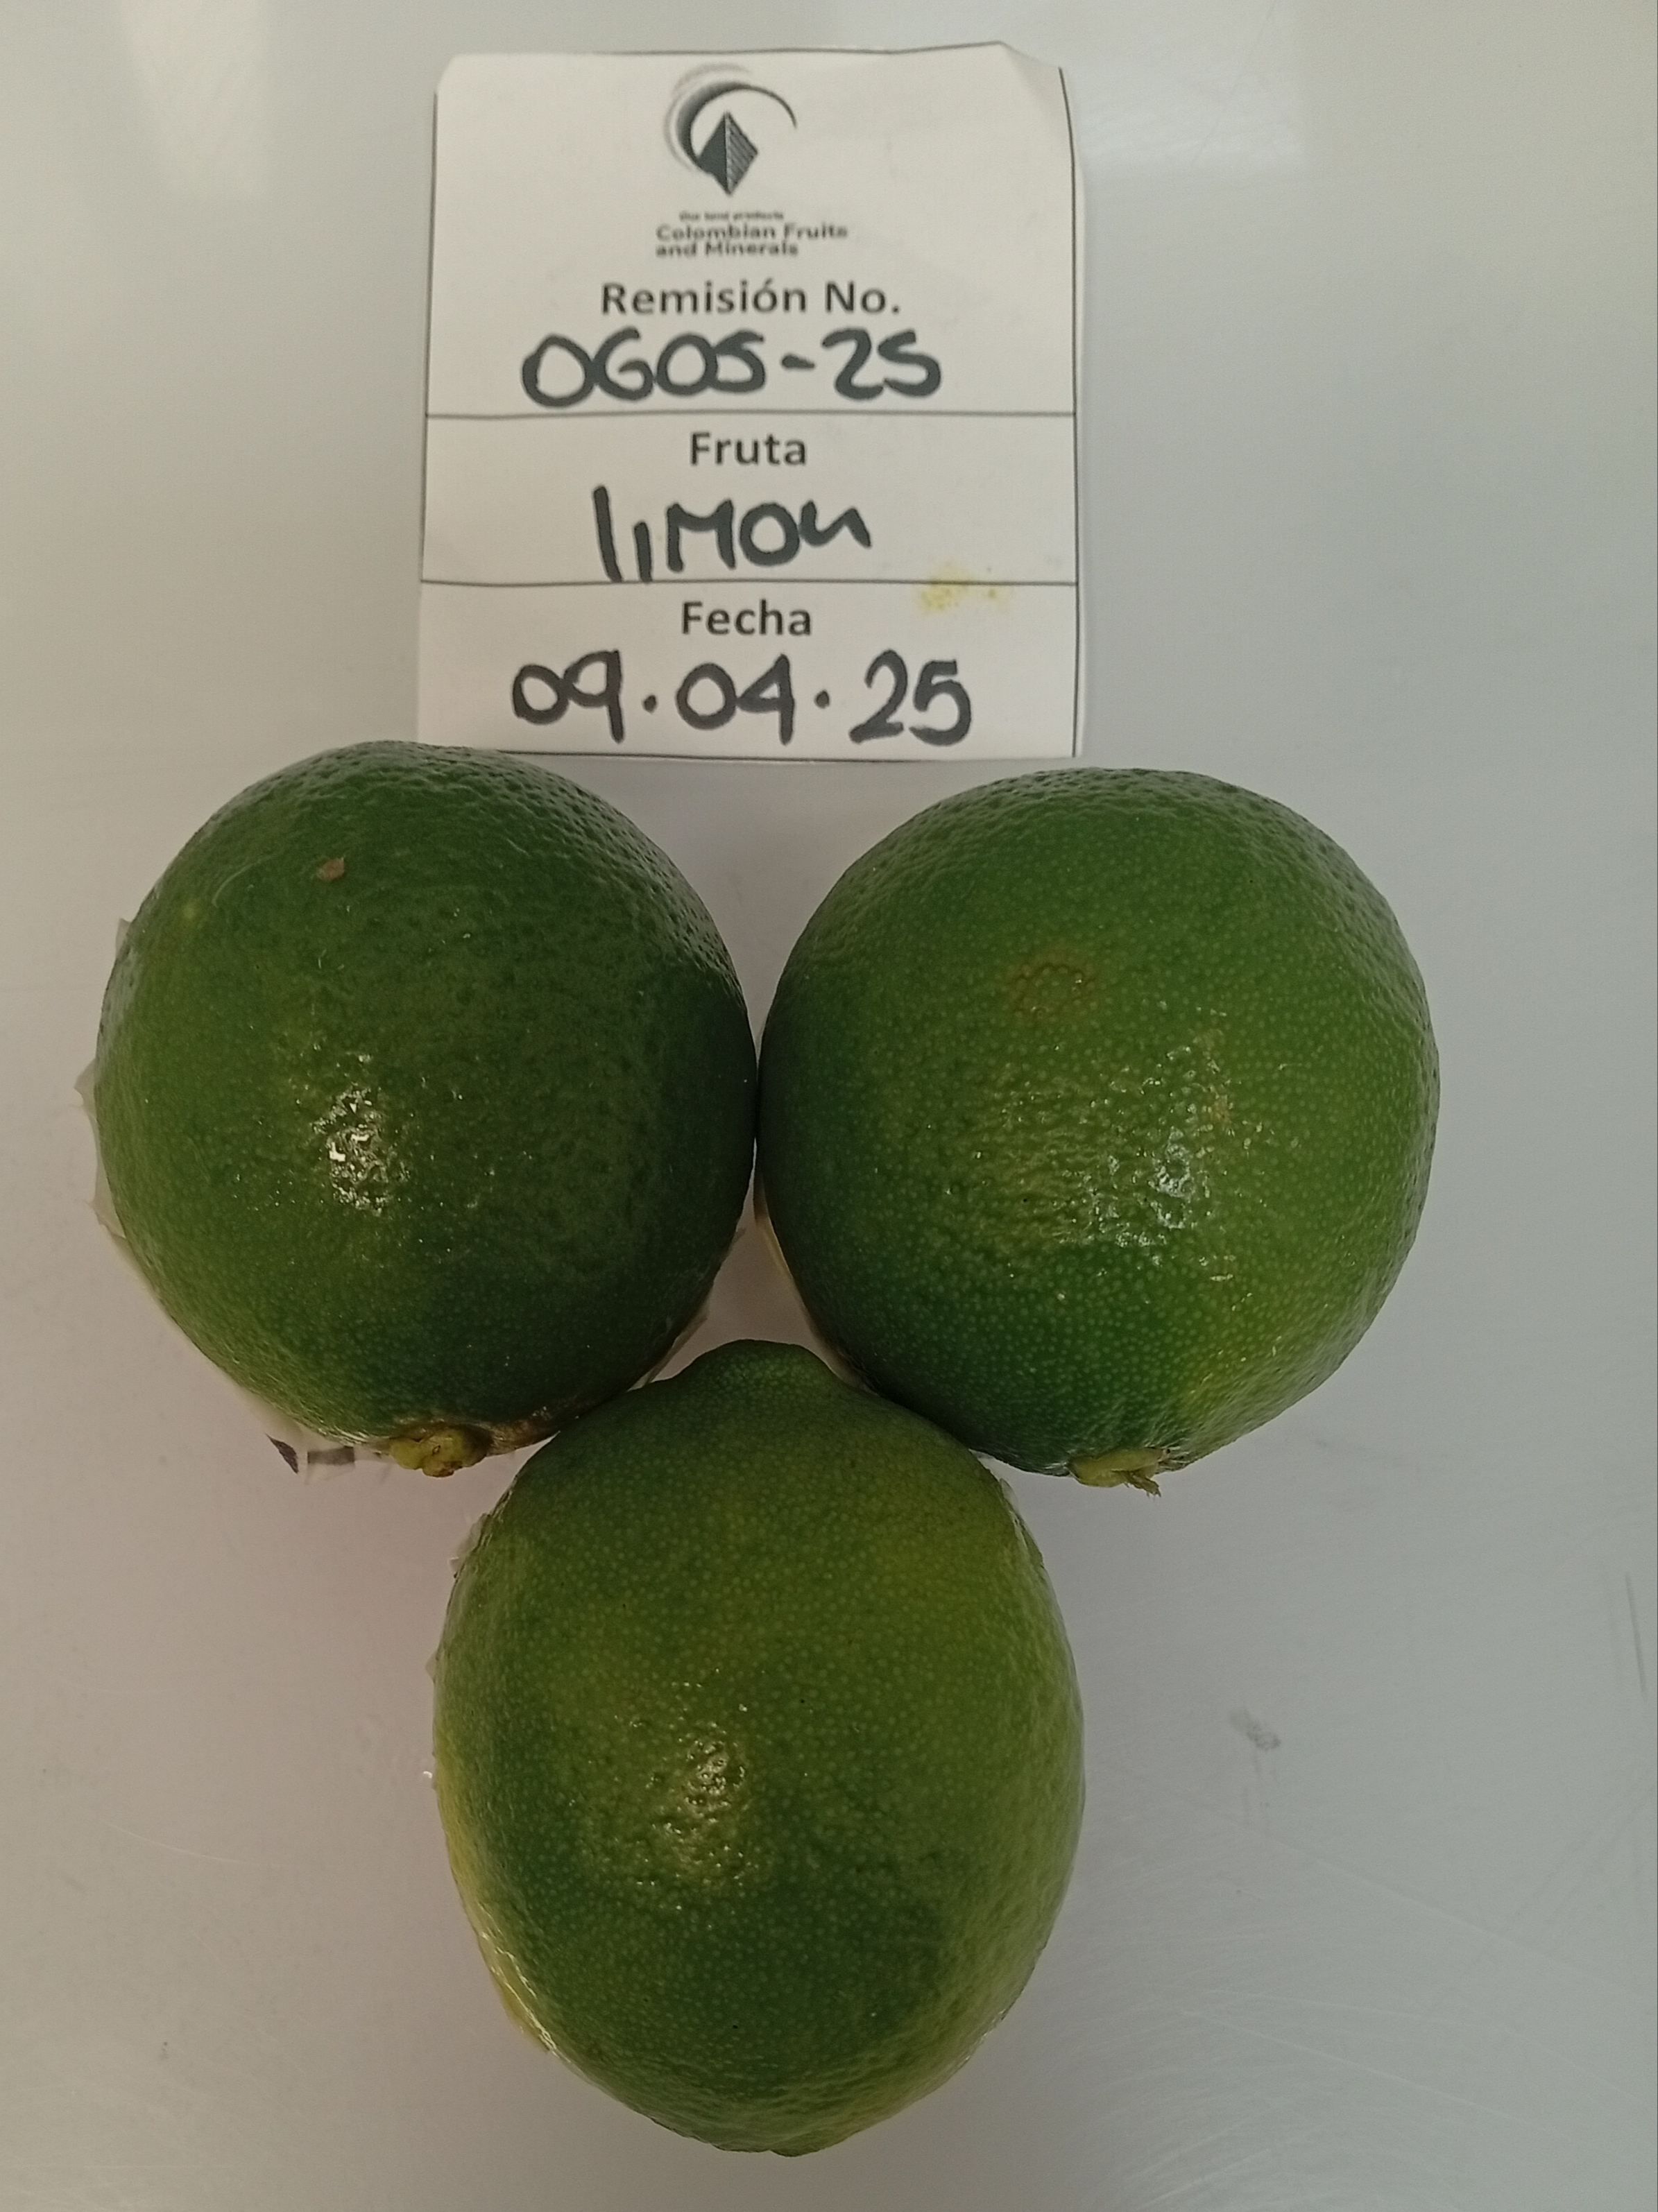 Our best products
Colombian Fruits
and Minerals
Remisión No.
0605-25
Fruta
limon
Fecha
09.04.25